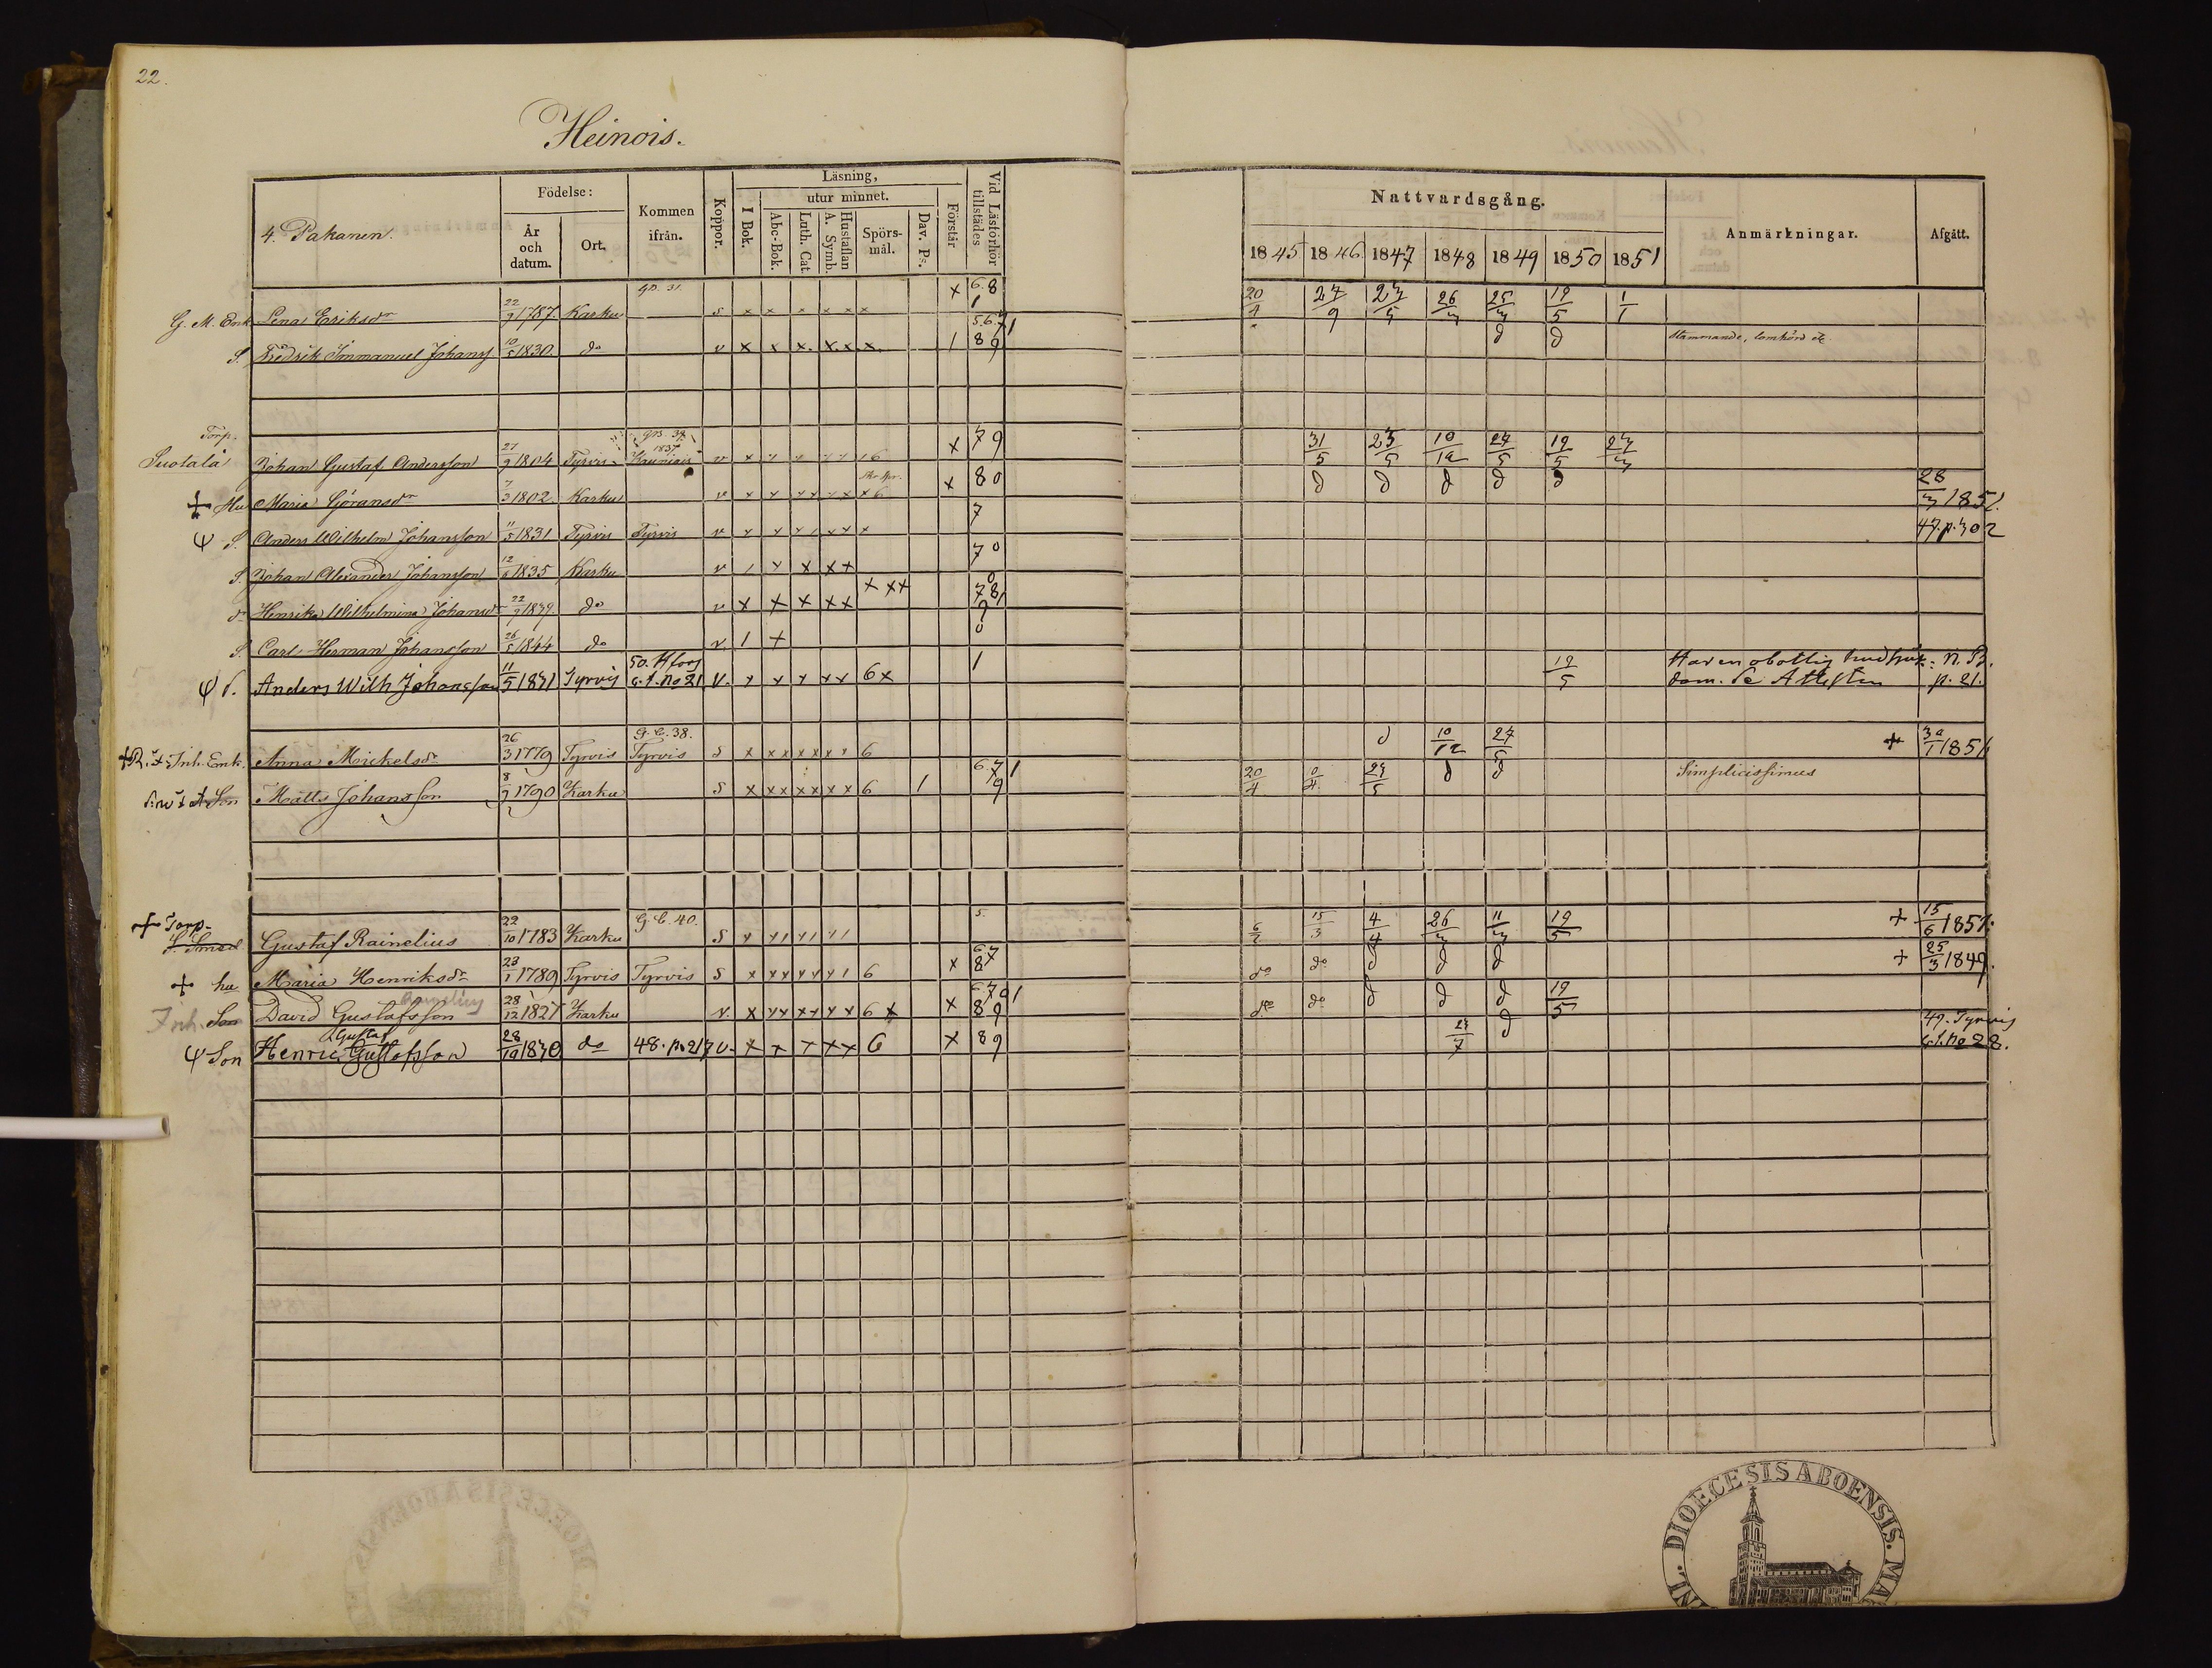 22.
Heinois.
4. Pakanen.
Födelse:
År och datum.
Ort.
Kommen ifrån.
Koppor.
Läsning,
I Bok.
utur minnet.
Abc-Bok.
Luth. Cat.
A. Symb.
Hustaflan
Spörsmål.
Dav. Ps.
Förstår.
Vid Läsförhör tillstädes
Nattvardsgång.
1845 1846 1847 1848 1849 1850 1851
Anmärkningar.
Afgått.
G. M. Enk. Lena Eriksdr 22/9 1787 Karku s x x x x x x x 6.8 1 20/4 27/9 23/5 26/3 25/3 19/5 1/1
S. Fredrik Immanuel Johanss 10/5 1830. do v x x x. x. x. x. 1 5.6.7 8 9 1 d d stammande, lomhörd
Torp. Suotala Johan Gustaf Andersson 21/9 1804 Tyrvis 1837 v x 6 x 7 9 31/5 23/5 10/12 27/5 19/5 23/3
+ Hu Maria Göransdr 7/3 1802 Karku v x 6 x 8 0 d d d d d 28/3 1851.
S. Anders Wilhelm Johansson 11/5 1831 Tyrvis Tyrvis v 7 47. p. 302
S. Johan Alexander Johansson 12/6 1835 Karku v 1 x x x x 7 0
dr Henrika Wilhelmina Johansdr 22/9 1839 do v x x x x x x x x 7 8 0 1 9
S. Carl Herman Johansson 26/5 1844 do v. 1 x 0
S. Anders Wilh Johansson 11/5 1831 Tyrvis 50. No 21 v. x x x x x 6 x 1 19/5 Har en obotlig
dom. Se Attesten p. 21.
Inh. Enk. Anna Mickelsdr 26/3 1779 Tyrvis G. C. 38. Tyrvis s x x x x x x x 6 d 10/12 27/5 +
Son Matts Johansson 8/9 1790 Karku s x x x x x x x 6 1 6.7 9 1 20/4 23/5 d d Simplicissimus
+ Torp. Gustaf Rainelius 22/10 1783 Karku G. C. 40. s 5. 15/3 4/4 26/3 11/3 19/5 + 15/6 1851.
+ hu Maria Henriksdr 23/1 1789 Tyrvis Tyrvis s x x x x x x 1 6 x 6 7 8 do do d d d + 25/3 1849.
Inh. Son David Gustafsson 28/12 1827 Karku v. x x x x x x x 6 x x 6 7 0 1 8 9 do do d d d 19/5
Son Henric Gustaf Gustafsson 28/10 1830 do 48. p. 217 v. x x x x x 6 x 8 9 23/7 d 49. Tyrvis
No 28.
DIOECESIS ABOENSIS.